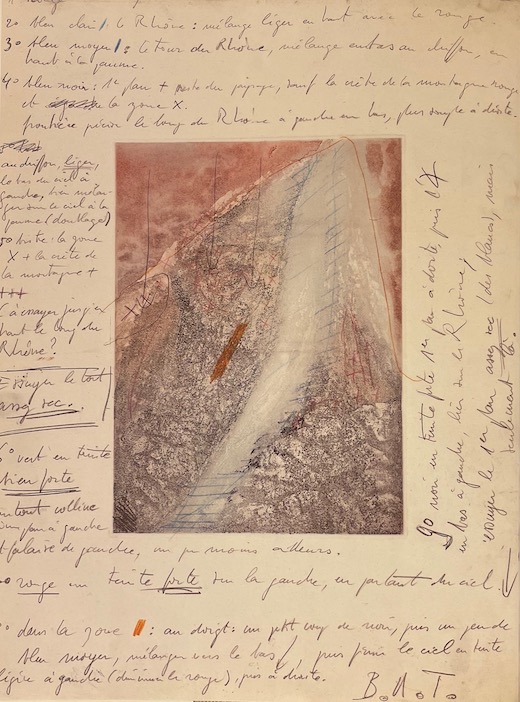 rouge
2º bleu clair / le Rhône : mélange léger en haut avec le rouge.
3º bleu moyen / : le tour du Rhône, mélange en bas au chiffon, en
haut à la paume.
4º bleu-noir : 1er plan + reste du paysage, sauf la crête de la montagne rouge
et la zone X.
frontière précise le long du Rhône à gauche en bas, plus souple à droite.
au chiffon, léger,
le bas du ciel à
gauche, bien mélan-
ger sur le ciel à la
paume (doublage)
la zone
X + la crête de
la montagne +
+++
(à essayer jusqu'en
haut le long du
Rhône ?
Essayer le tout
assez sec.
6º vert en teinte
bien forte
surtout colline
1er plan à gauche
et falaise de gauche, un peu moins ailleurs.
rouge en teinte forte sur la gauche, en partant du ciel.
dans la zone || : au doigt : un petit coup de noir, puis un peu de
bleu moyen, mélanger vers le bas /, puis finir le ciel en teinte
légère à gauche (diminuer le rouge), puis à droite.
B.A.T.
9º noir en teinte forte 1er plan à droite, puis
en bas à gauche, lier sur le Rhône,
essuyer le 1er plan assez sec (des blancs), mais
seulement
X
+++